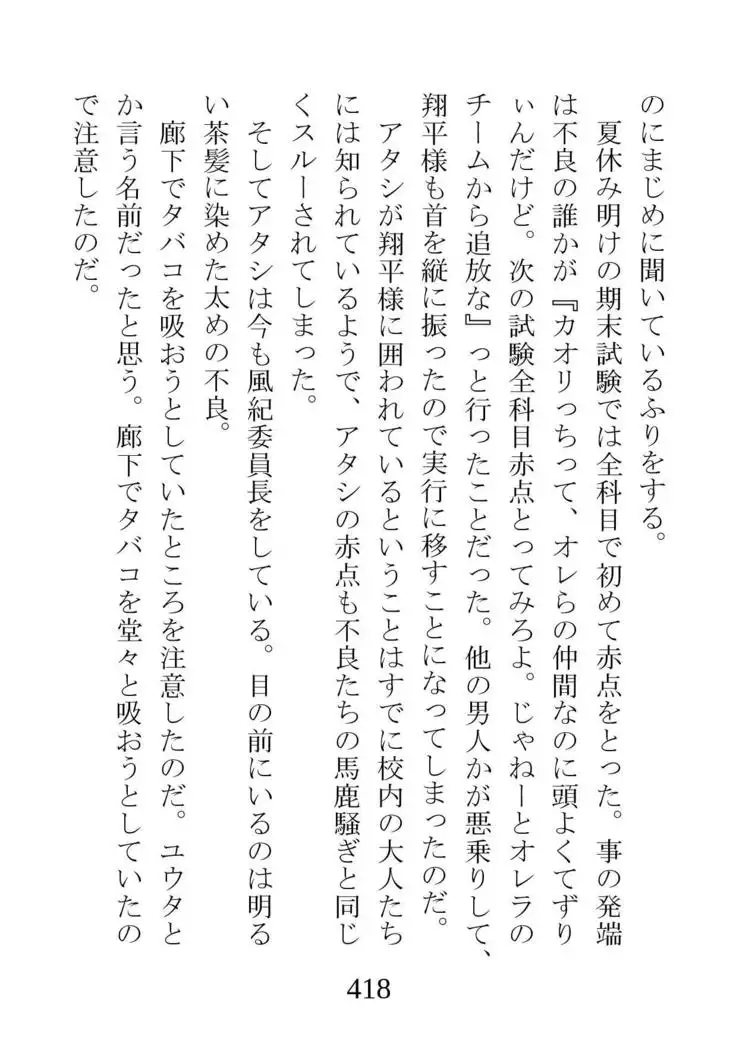 のにまじめに聞いているふりをする。
　夏休み明けの期末試験では全科目で初めて赤点をとった。事の発端
は不良の誰かが『カオリっちって、オレらの仲間なのに頭よくてずり
ぃんだけど。次の試験全科目赤点とってみろよ。じゃねーとオレラの
チームから追放な』っと行ったことだった。他の男人かが悪乗りして、
翔平様も首を縦に振ったので実行に移すことになってしまったのだ。
　アタシが翔平様に囲われているということはすでに校内の大人たち
には知られているようで、アタシの赤点も不良たちの馬鹿騒ぎと同じ
くスルーされてしまった。
　そしてアタシは今も風紀委員長をしている。目の前にいるのは明る
い茶髪に染めた太めの不良。
　廊下でタバコを吸おうとしていたところを注意したのだ。ユウタと
か言う名前だったと思う。廊下でタバコを堂々と吸おうとしていたの
で注意したのだ。
418